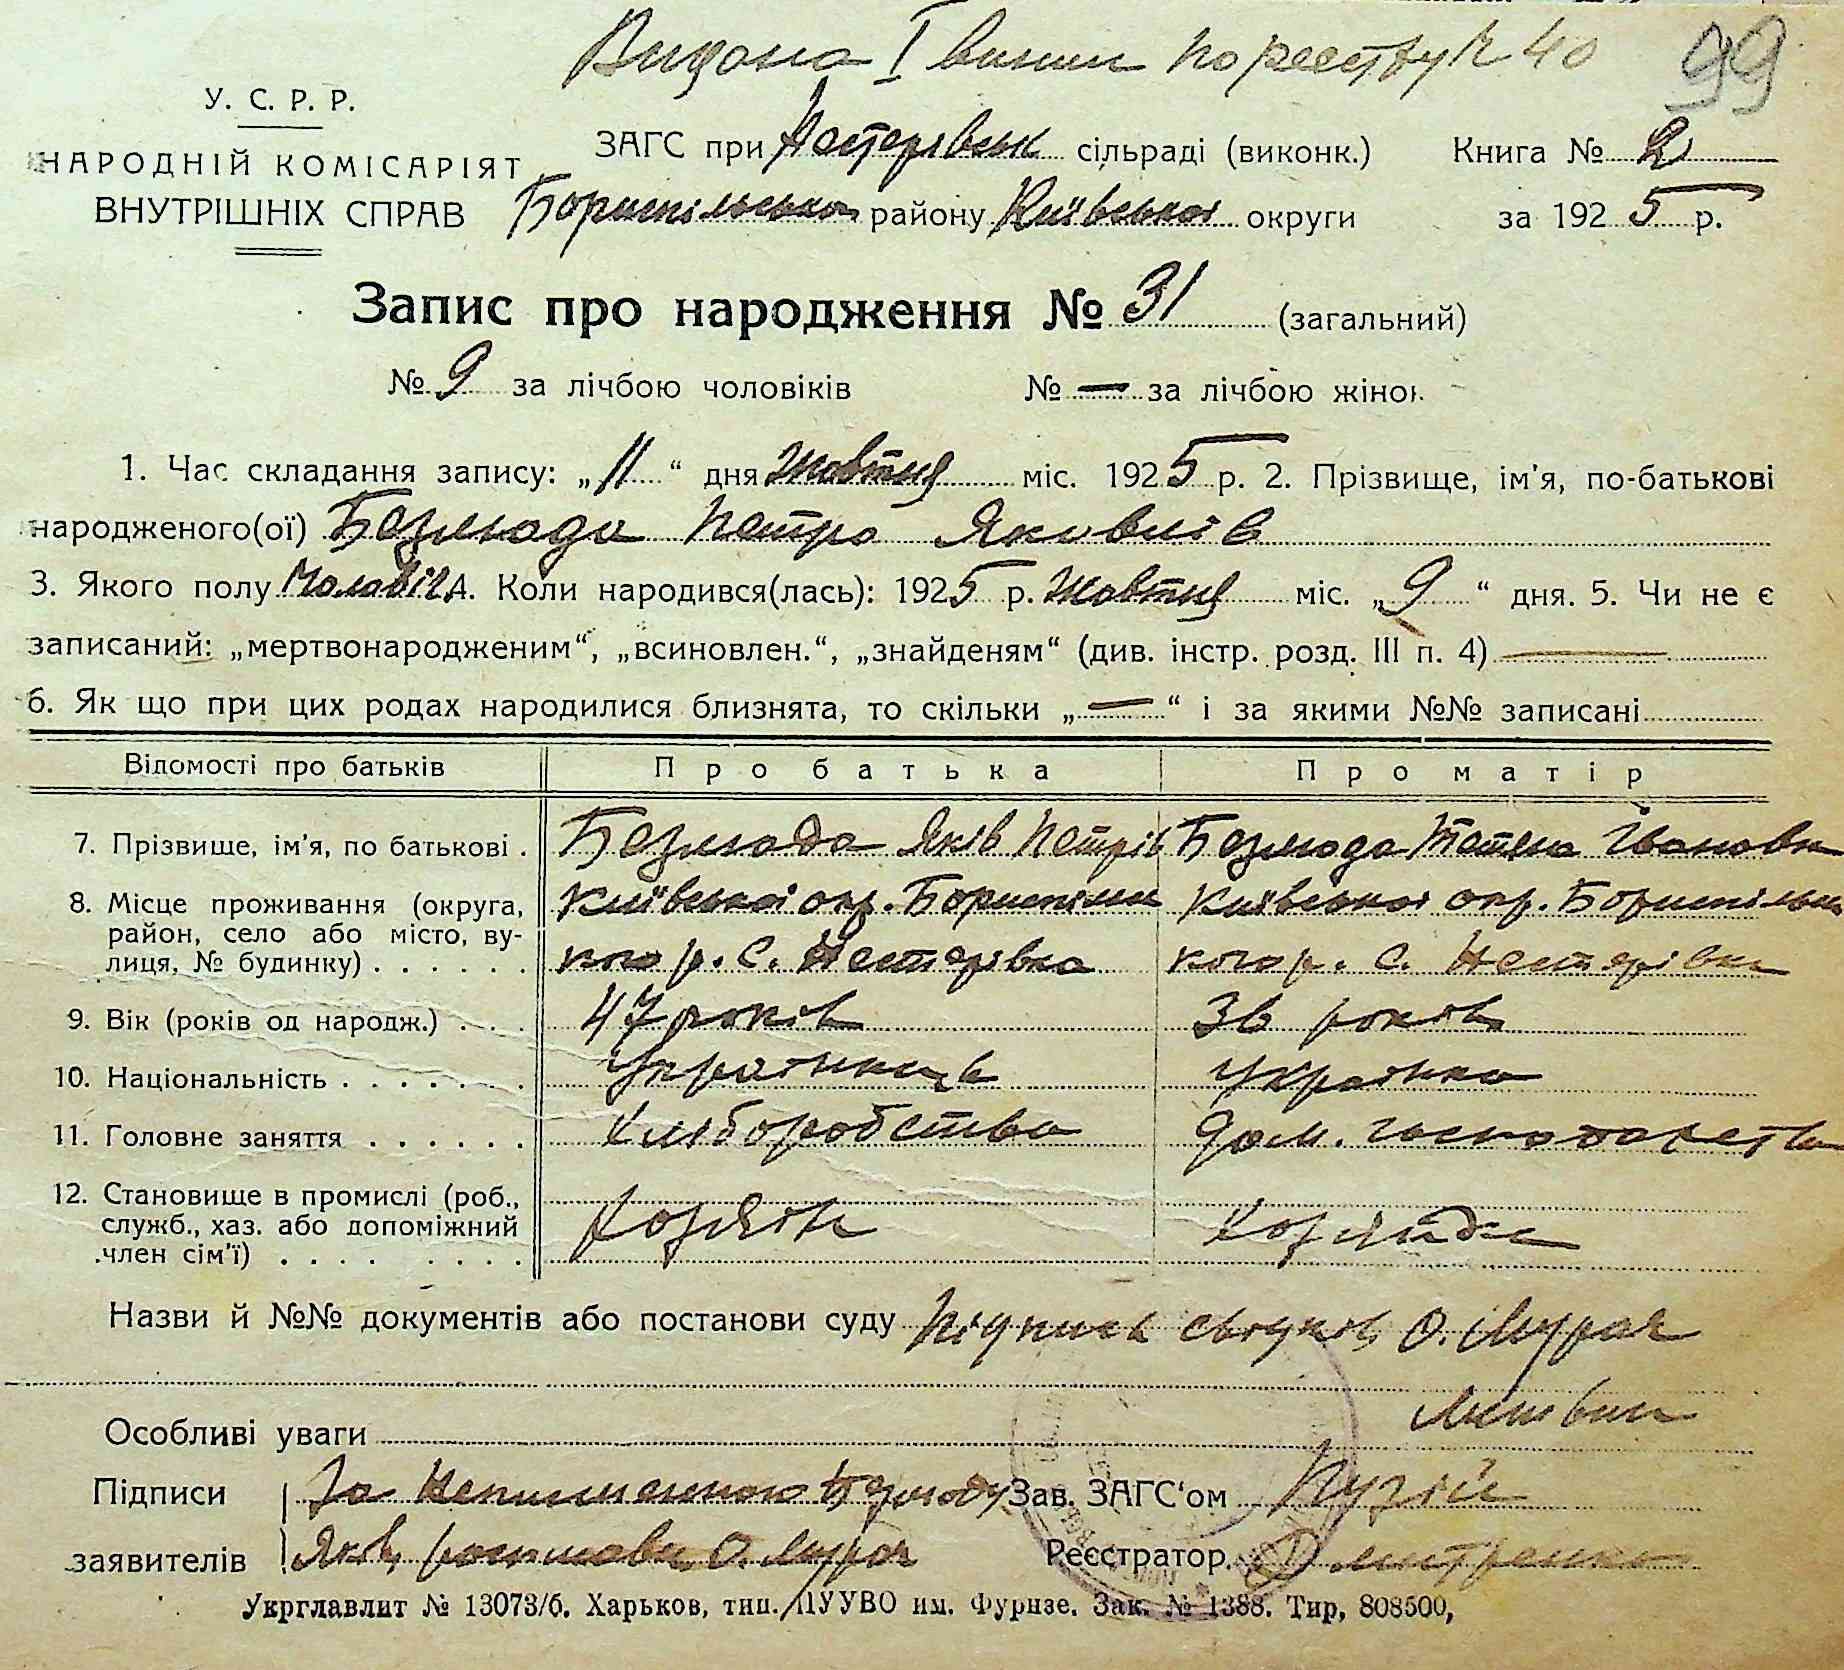 Видана І випис по реєстру № 40
99
У. С. Р. Р.
НАРОДНІЙ КОМІСАРІЯТ
ВНУТРІШНІХ СПРАВ
ЗАГС при Нестерівськ сільраді (виконк.) Книга № 2
Бориспільського району Київської округи за 1925 р.
Запис про народження № 31 (загальний)
№ 9 за лічбою чоловіків № — за лічбою жінок
1. Час складання запису: „11“ дня Жовтня міс. 1925 р. 2. Прізвище, ім'я, по-батькові
народженого(ої) Безлюда Петро Яковлів
3. Якого полу Чоловіч. 4. Коли народився(лась): 1925 р. Жовтня міс. „9“ дня. 5. Чи не є
записаний: „мертвонародженим“, „всиновлен.“, „знайденям“ (див. інстр. розд. III п. 4) —
6. Як що при цих родах народилися близнята, то скільки „—“ і за якими №№ записані
Відомості про батьків Про батька Про матір
7. Прізвище, ім'я, по батькові . Безлюда Яків Петрів Безлюда Тетяна Івановна
8. Місце проживання (округа, Київської окр. Бориспільсь Київської окр. Бориспільсь
район, село або місто, ву-
лиця, № будинку) . . . . . . кого р. с. Нестерівка кого р. с. Нестерівка
9. Вік (років од народж.) . . . 47 років 36 років
10. Національність . . . . . . . Українець Українка
11. Головне заняття . . . . . . Хліборобство дом. господарство
12. Становище в промислі (роб.,
служб., хаз. або допоміжний Хозяїн Хозяйка
член сім'ї) . . . . . . . .
Назви й №№ документів або постанови суду Підписи свідків О. Мурах
Литвин
Особливі уваги
Підписи За неписьменного Безлюду Зав. ЗАГС'ом Пузій
заявителів Яків, росписався О. Мурах Реєстратор. Дмитренко
Укрглавлит № 13073/б. Харьков, тип. ПУУВО им. Фрунзе. Зак. № 1388. Тир, 808500,